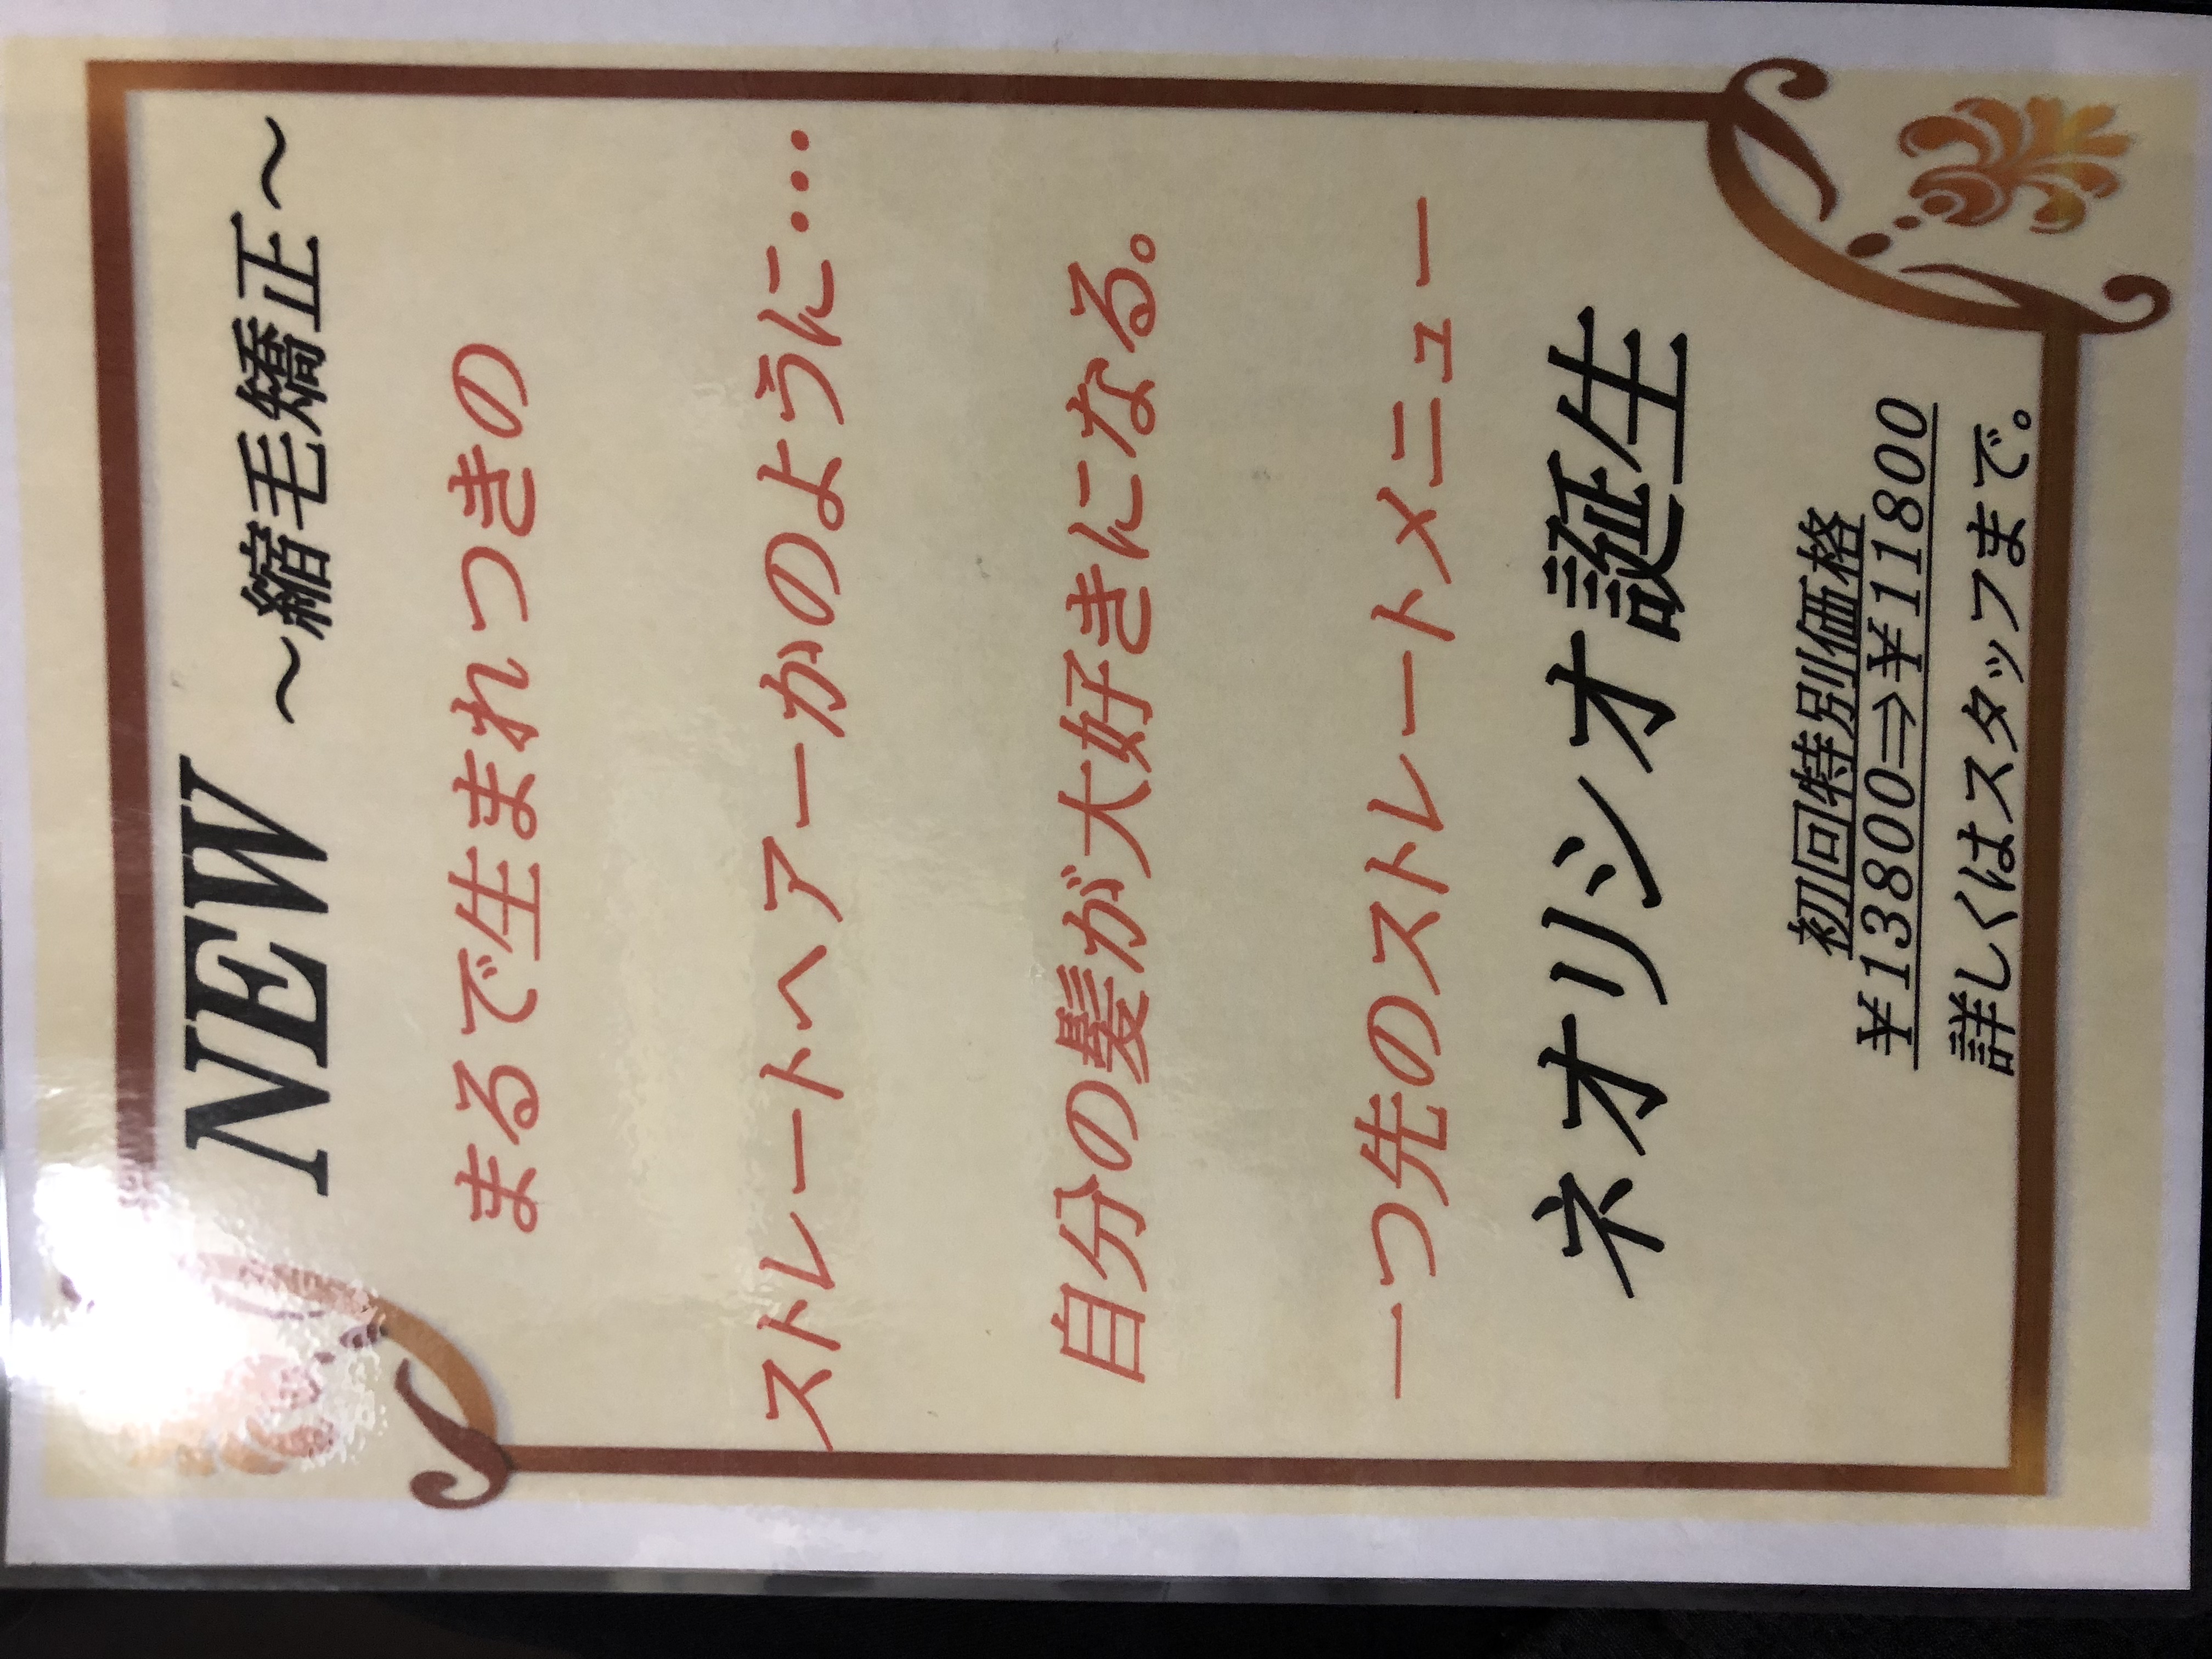 NEW ～縮毛矯正～
まるで生まれつきの
ストレートヘアーかのように…
自分の髪が大好きになる。
一つ先のストレートメニュー
ネオリシオ誕生
初回特別価格
¥13800⇒¥11800
詳しくはスタッフまで。